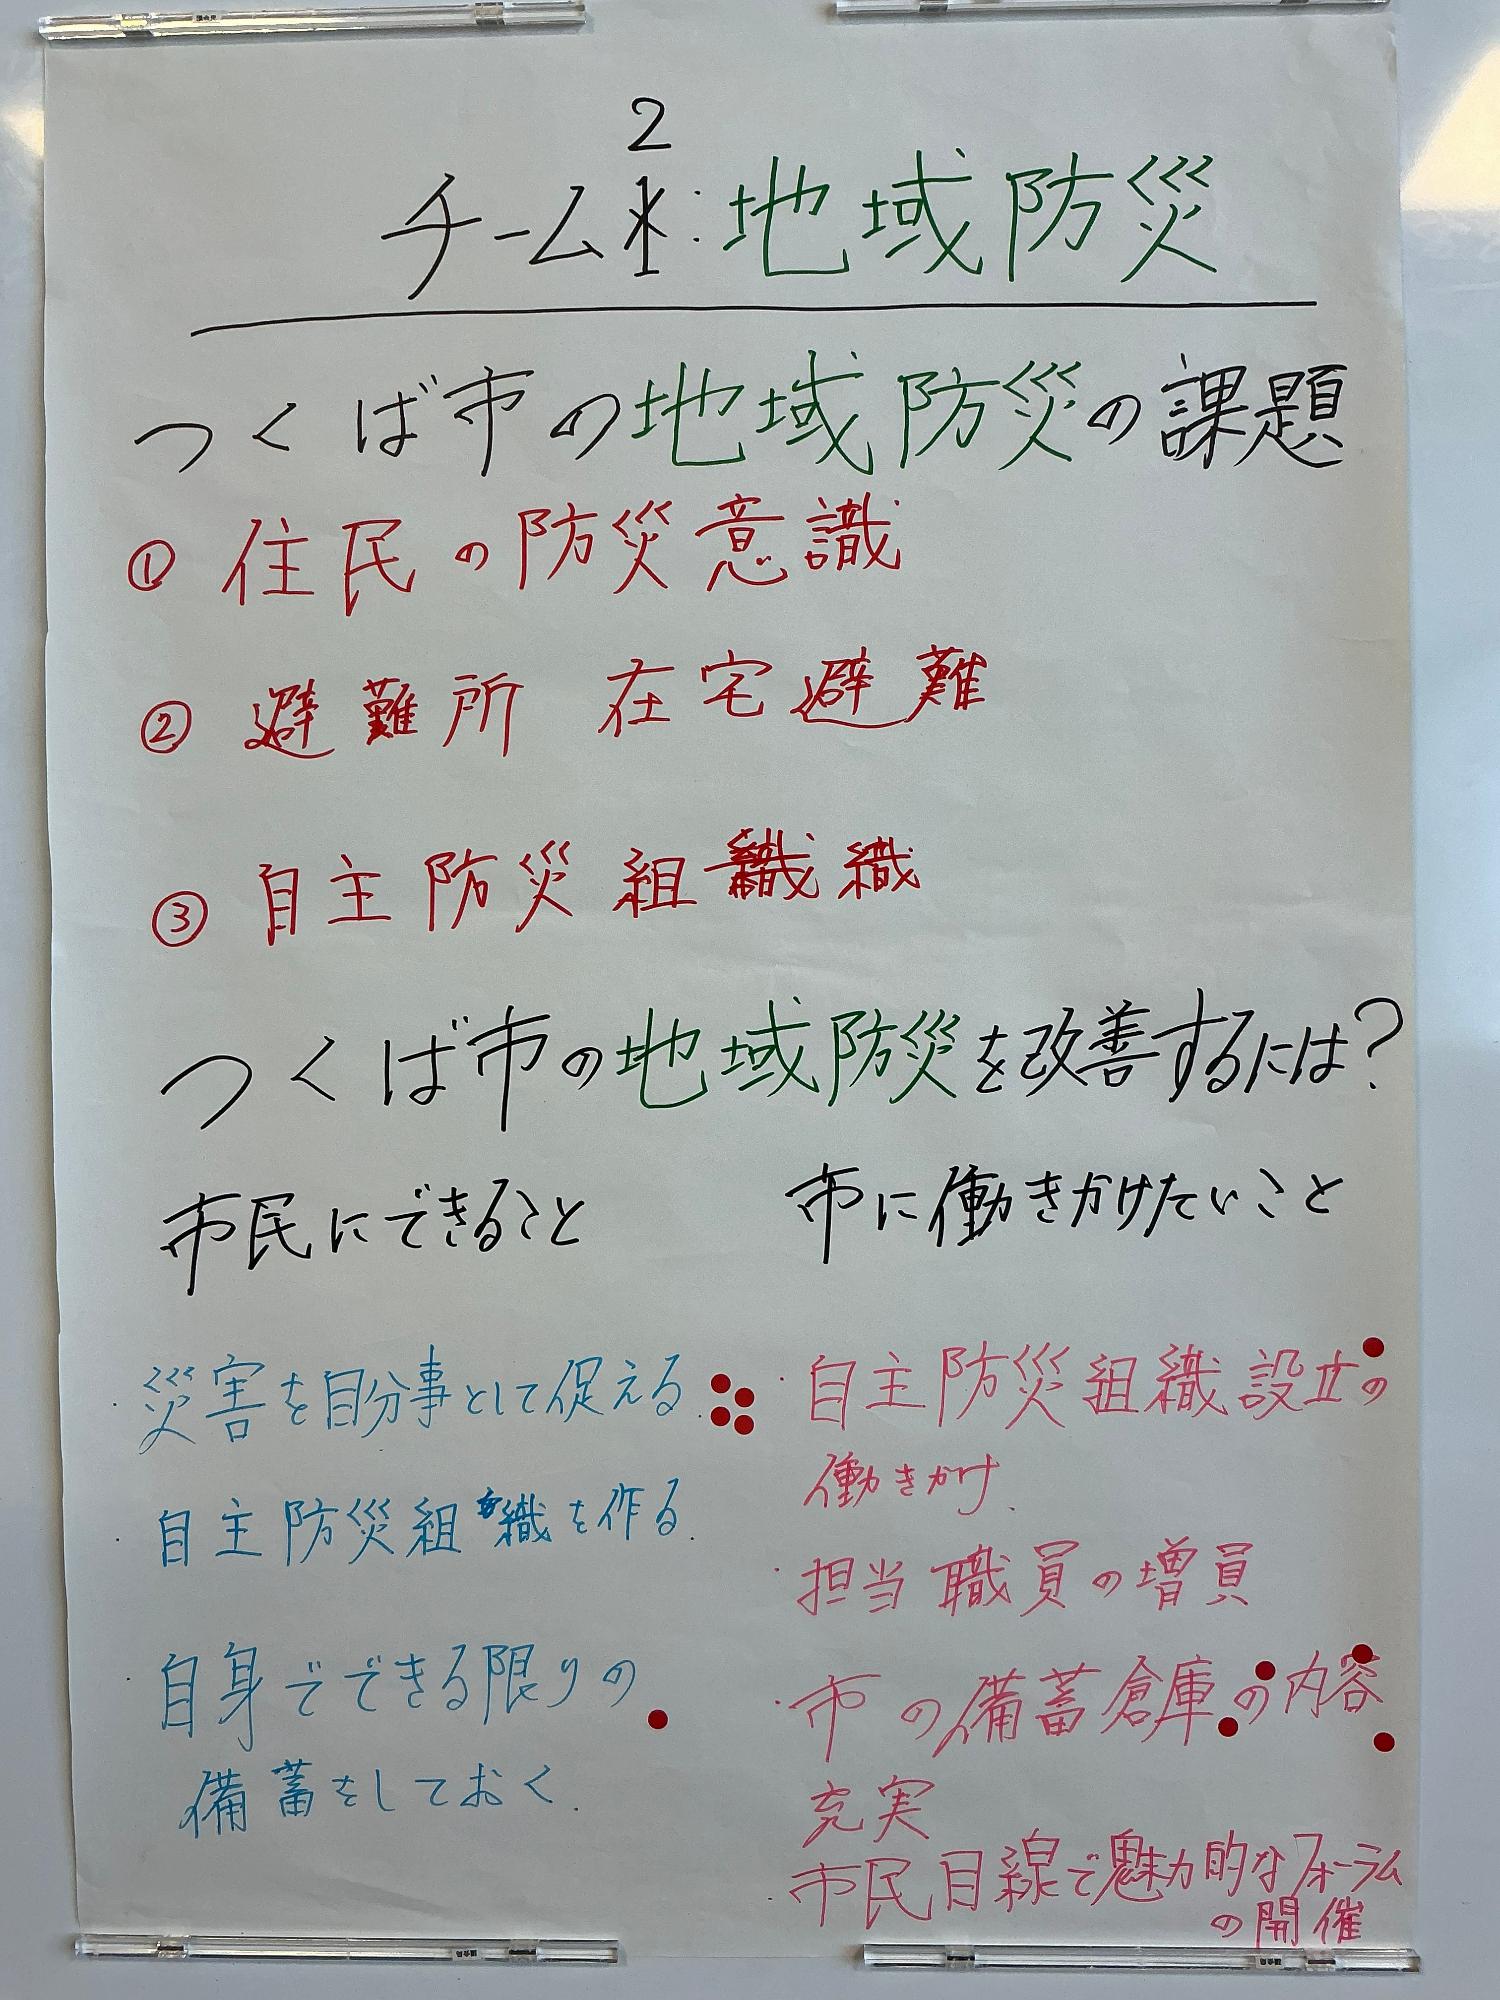 2
チーム: 地域防災
つくば市の地域防災の課題
① 住民の防災意識
② 避難所 在宅避難
③ 自主防災組織
つくば市の地域防災を改善するには?
市民にできること
・災害を自分事として促える
・自主防災組織を作る
・自身でできる限りの
備蓄をしておく.
市に働きかけたいこと
・自主防災組織設立の
働きかけ.
・担当職員の増員
・市の備蓄倉庫の内容
充実
・市民目線で魅力的なフォーラム
の開催